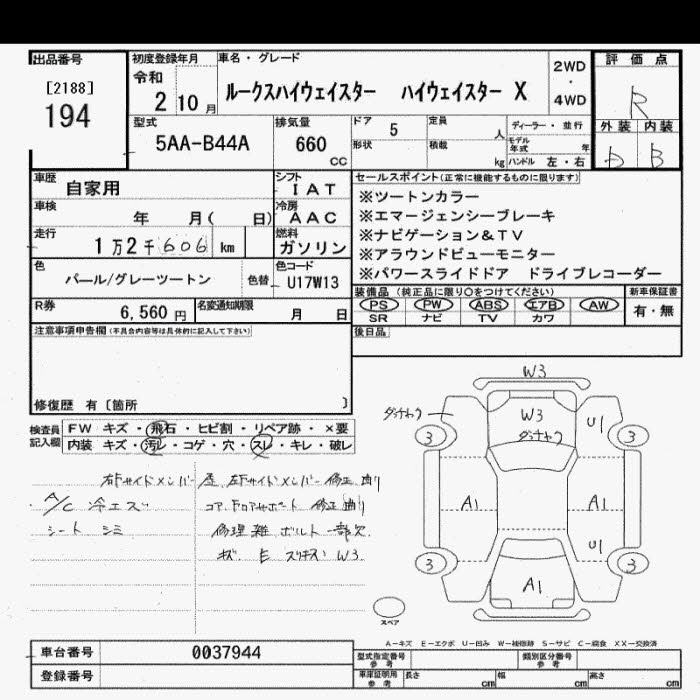 出品番号
[2188]
194
初度登録年月
令和
2 10月
車名・グレード
ルークスハイウェイスター ハイウェイスター X
2WD
・
4WD
評価点
R
外装 内装
B
型式
5AA-B44A
排気量
660
cc
ドア 5
形状
定員 人
積載 kg
ディーラー・並行
モデル年式 年
ハンドル 左・右
車歴 自家用
車検 年 月( 日)
走行 1万2千606 km
色 パール/グレーツートン
色替
シフト IAT
冷房 AAC
燃料 ガソリン
色コード U17W13
R券 6,560円
名変通知期限 月 日
セールスポイント(正常に機能するものに限ります)
※ツートンカラー
※エマージェンシーブレーキ
※ナビゲーション&TV
※アラウンドビューモニター
※パワースライドドア ドライブレコーダー
装備品(純正品に限り○をつけてください)
PS PW ABS エアB AW
SR ナビ TV カワ
新車保証書
有・無
後日品
注意事項申告欄(不具合内容等は具体的に記入して下さい)
修復歴 有〔箇所 〕
検査員記入欄
FW キズ・飛石・ヒビ割・リペア跡・×要
内装 キズ・汚レ・コゲ・穴・スレ・キレ・破レ
右Fサイドメンバー 左Fサイドメンバー 修正 曲り
A/C 冷エズ
コア、Fロアサポート 修正 曲り
シート シミ
修理難 ボルト一部欠
キズ E W3
W3
W3
U1
3
3
A1
A1
U1
3
3
A1
スペア
A-キズ E-エクボ U-凹み W-補修跡 S-サビ C-腐食 XX-交換済
車台番号 0037944
登録番号
型式指定番号 参考
類別区分番号 参考
車庫証明用 参考
長さ cm
幅 cm
高さ cm